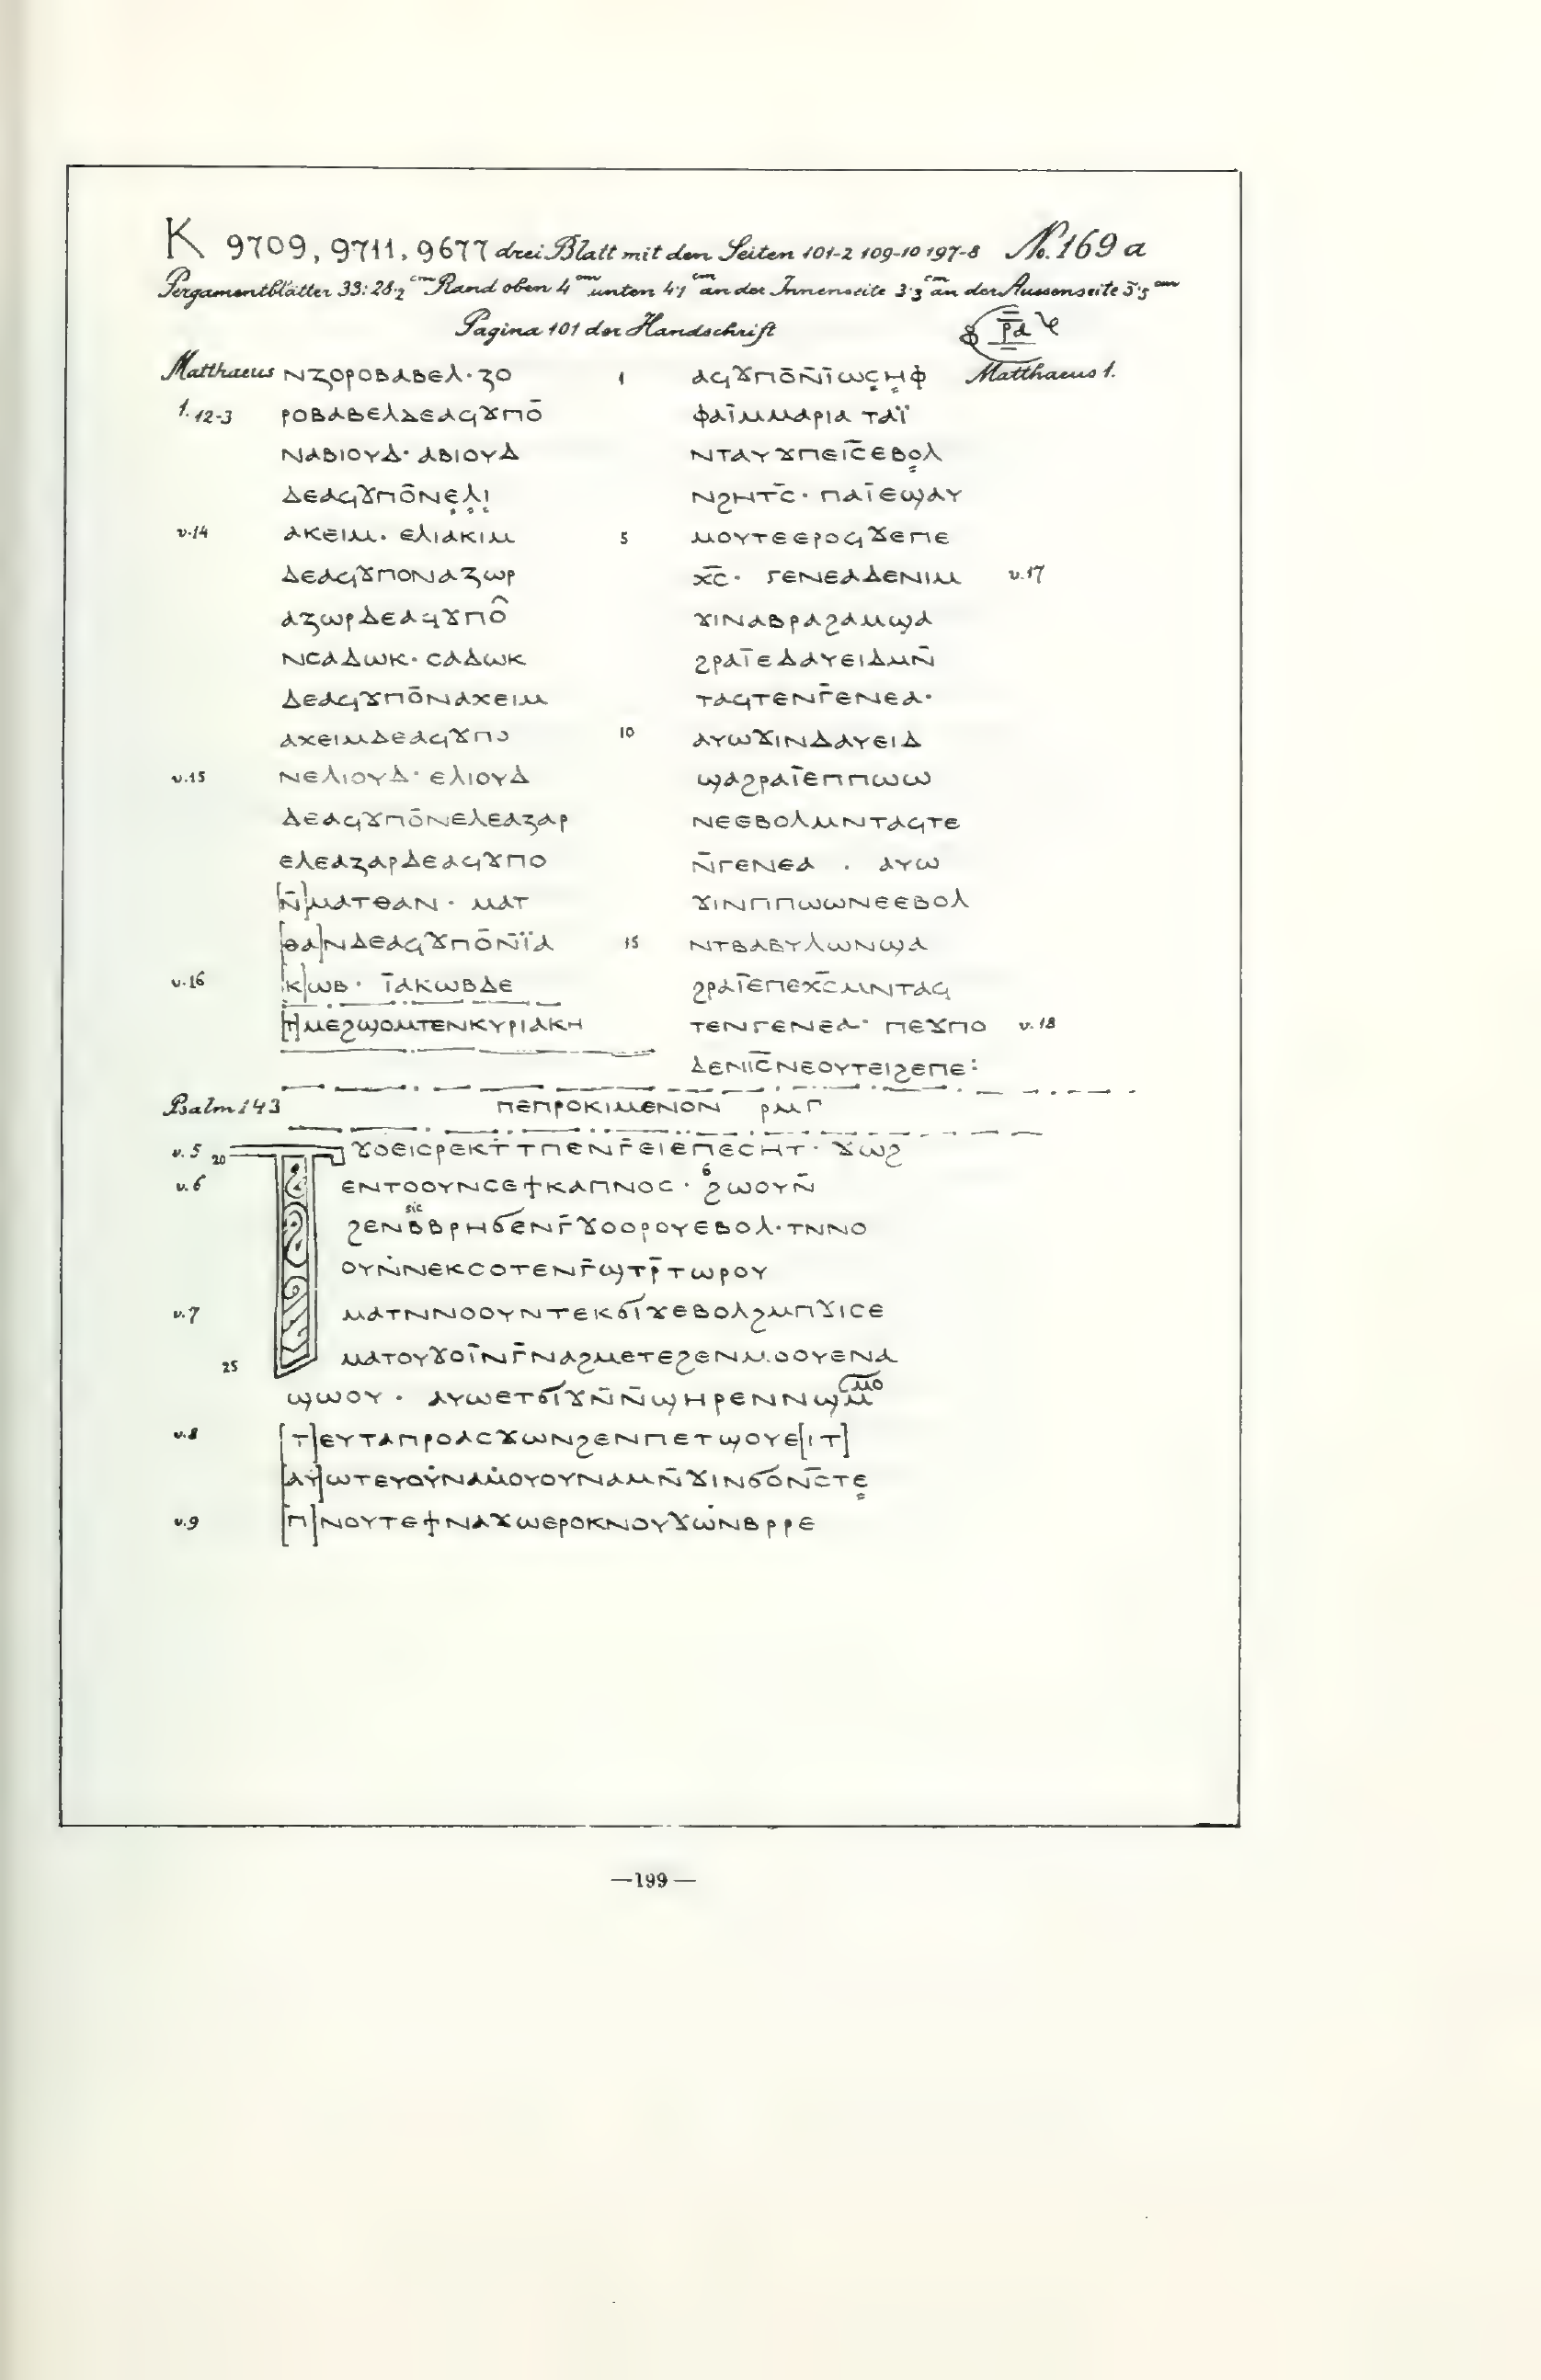 K 9709, 9711, 9677 drei Blatt mit den Seiten 101-2 109-10 197-8 No. 169 a
Pergamentblätter 33:28·2 cm Rand oben 4 cm unten 4·1 cm an der Innenseite 3·3 cm an der Aussenseite 5·5 cm
Pagina 101 der Handschrift
ⲣ̅ⲁ̅
Matthaeus
1. 12-3
ⲛⲍⲟⲣⲟⲃⲁⲃⲉⲗ· ⲍⲟ
ⲣⲟⲃⲁⲃⲉⲗⲇⲉⲁϥϫⲡⲟ̄
ⲛⲁⲃⲓⲟⲩⲇ· ⲁⲃⲓⲟⲩⲇ
ⲇⲉⲁϥϫⲡⲟ̄ⲛⲉ̣ⲗ̣ⲓ̣
v.14 ⲁⲕⲉⲓⲙ· ⲉⲗⲓⲁⲕⲓⲙ
ⲇⲉⲁϥϫⲡⲟⲛⲁⲍⲱⲣ
ⲁⲍⲱⲣⲇⲉⲁϥϫⲡⲟ̂
ⲛⲥⲁⲇⲱⲕ· ⲥⲁⲇⲱⲕ
ⲇⲉⲁϥϫⲡⲟ̄ⲛⲁⲭⲉⲓⲙ
ⲁⲭⲉⲓⲙⲇⲉⲁϥϫⲡⲟ
v.15 ⲛⲉⲗⲓⲟⲩⲇ· ⲉⲗⲓⲟⲩⲇ
ⲇⲉⲁϥϫⲡⲟ̄ⲛⲉⲗⲉⲁⲍⲁⲣ
ⲉⲗⲉⲁⲍⲁⲣⲇⲉⲁϥϫⲡⲟ
[ⲛ̄]ⲙⲁⲧⲑⲁⲛ· ⲙⲁⲧ
[ⲑⲁ]ⲛⲇⲉⲁϥϫⲡⲟ̄ⲛ̄ⲓ̈ⲁ
v.16 [ⲕ]ⲱⲃ· ⲓ̄ⲁⲕⲱⲃⲇⲉ
[ⲧ]ⲙⲉϩϣⲟⲙⲧⲉⲛⲕⲩⲣⲓⲁⲕⲏ
Matthaeus 1.
1 ⲁϥϫⲡⲟ̄ⲛ̄ⲓ̄ⲱⲥ̣ⲏ̣ⲫ
ⲫⲁⲓ̄ⲙⲙⲁⲣⲓⲁ ⲧⲁⲓ̈
ⲛⲧⲁⲩϫⲡⲉⲓ̅ⲥ̅ⲉⲃⲟ̣ⲗ
ⲛϩⲏⲧⲥ̄· ⲡⲁⲓ̄ⲉϣⲁⲩ
5 ⲙⲟⲩⲧⲉⲉⲣⲟϥϫⲉⲡⲉ
ⲭ̅ⲥ̅· ⲅⲉⲛⲉⲁⲇⲉⲛⲓⲙ v.17
ϫⲓⲛⲁⲃⲣⲁϩⲁⲙϣⲁ
ϩⲣⲁⲓ̄ⲉⲇⲁⲩⲉⲓⲇⲙⲛ̄
ⲧⲁϥⲧⲉⲛⲅ̄ⲉⲛⲉⲁ·
10 ⲁⲩⲱϫⲓⲛⲇⲁⲩⲉⲓⲇ
ϣⲁϩⲣⲁⲓ̄ⲉⲡⲡⲱⲱ
ⲛⲉⲉⲃⲟⲗⲙⲛⲧⲁϥⲧⲉ
ⲛ̄ⲅⲉⲛⲉⲁ · ⲁⲩⲱ
ϫⲓⲛⲡⲡⲱⲱⲛⲉⲉⲃⲟⲗ
15 ⲛⲧⲃⲁⲃⲩⲗⲱⲛϣⲁ
ϩⲣⲁⲓ̄ⲉⲡⲉⲭ̅ⲥ̅ⲙⲛⲧⲁϥ
ⲧⲉⲛⲅⲉⲛⲉⲁ· ⲡⲉϫⲡⲟ v.18
ⲇⲉⲛⲓ̅ⲥ̅ⲛⲉⲟⲩⲧⲉⲓϩⲉⲡⲉ:
Psalm 143 ⲡⲉⲡⲣⲟⲕⲓⲙⲉⲛⲟⲛ ⲣⲙⲅ
v.5 20 ⲡϫⲟⲉⲓⲥⲣⲉⲕⲧ̇ⲧⲡⲉⲛⲅ̄ⲉⲓⲉⲡⲉⲥⲏⲧ· ϫⲱϩ
v.6 ⲉⲛⲧⲟⲟⲩⲛⲥⲉϯⲕⲁⲡⲛⲟⲥ· ϩⲱⲟⲩⲛ̄
sic
ϩⲉⲛⲃⲃⲣⲏϭⲉⲛⲅ̄ϫⲟⲟⲣⲟⲩⲉⲃⲟⲗ·ⲧⲛⲛⲟ
ⲟⲩⲛ̇ⲛⲉⲕⲥⲟⲧⲉⲛⲅ̄ϣⲧⲣ̄ⲧⲱⲣⲟⲩ
v.7 ⲙⲁⲧⲛⲛⲟⲟⲩⲛⲧⲉⲕϭⲓ̄ϫⲉⲃⲟⲗϩⲙⲡϫⲓⲥⲉ
25 ⲙⲁⲧⲟⲩϫⲟⲓ̄ⲛⲅ̄ⲛⲁϩⲙⲉⲧⲉϩⲉⲛⲙⲟⲟⲩⲉⲛⲁ
ϣⲱⲟⲩ· ⲁⲩⲱⲉⲧϭⲓ̄ϫⲛ̄ⲛ̄ϣⲏⲣⲉⲛⲛϣⲙ̄ⲙⲟ
v.8 [ⲧ]ⲉⲩⲧⲁⲡⲣⲟⲁⲥϫⲱⲛϩⲉⲛⲡⲉⲧϣⲟⲩⲉ[ⲓⲧ]
[ⲁⲩ]ⲱⲧⲉⲩⲟⲩ̇ⲛⲁⲙ̇ⲟⲩⲟⲩⲛⲁⲙⲛ̄ϫⲓⲛϭⲟⲛ̄ⲥ̄ⲧⲉ̣
v.9 [ⲡ]ⲛⲟⲩⲧⲉϯⲛⲁϫⲱⲉⲣⲟⲕⲛⲟⲩϫⲱ̇ⲛⲃⲣⲣⲉ
—199—